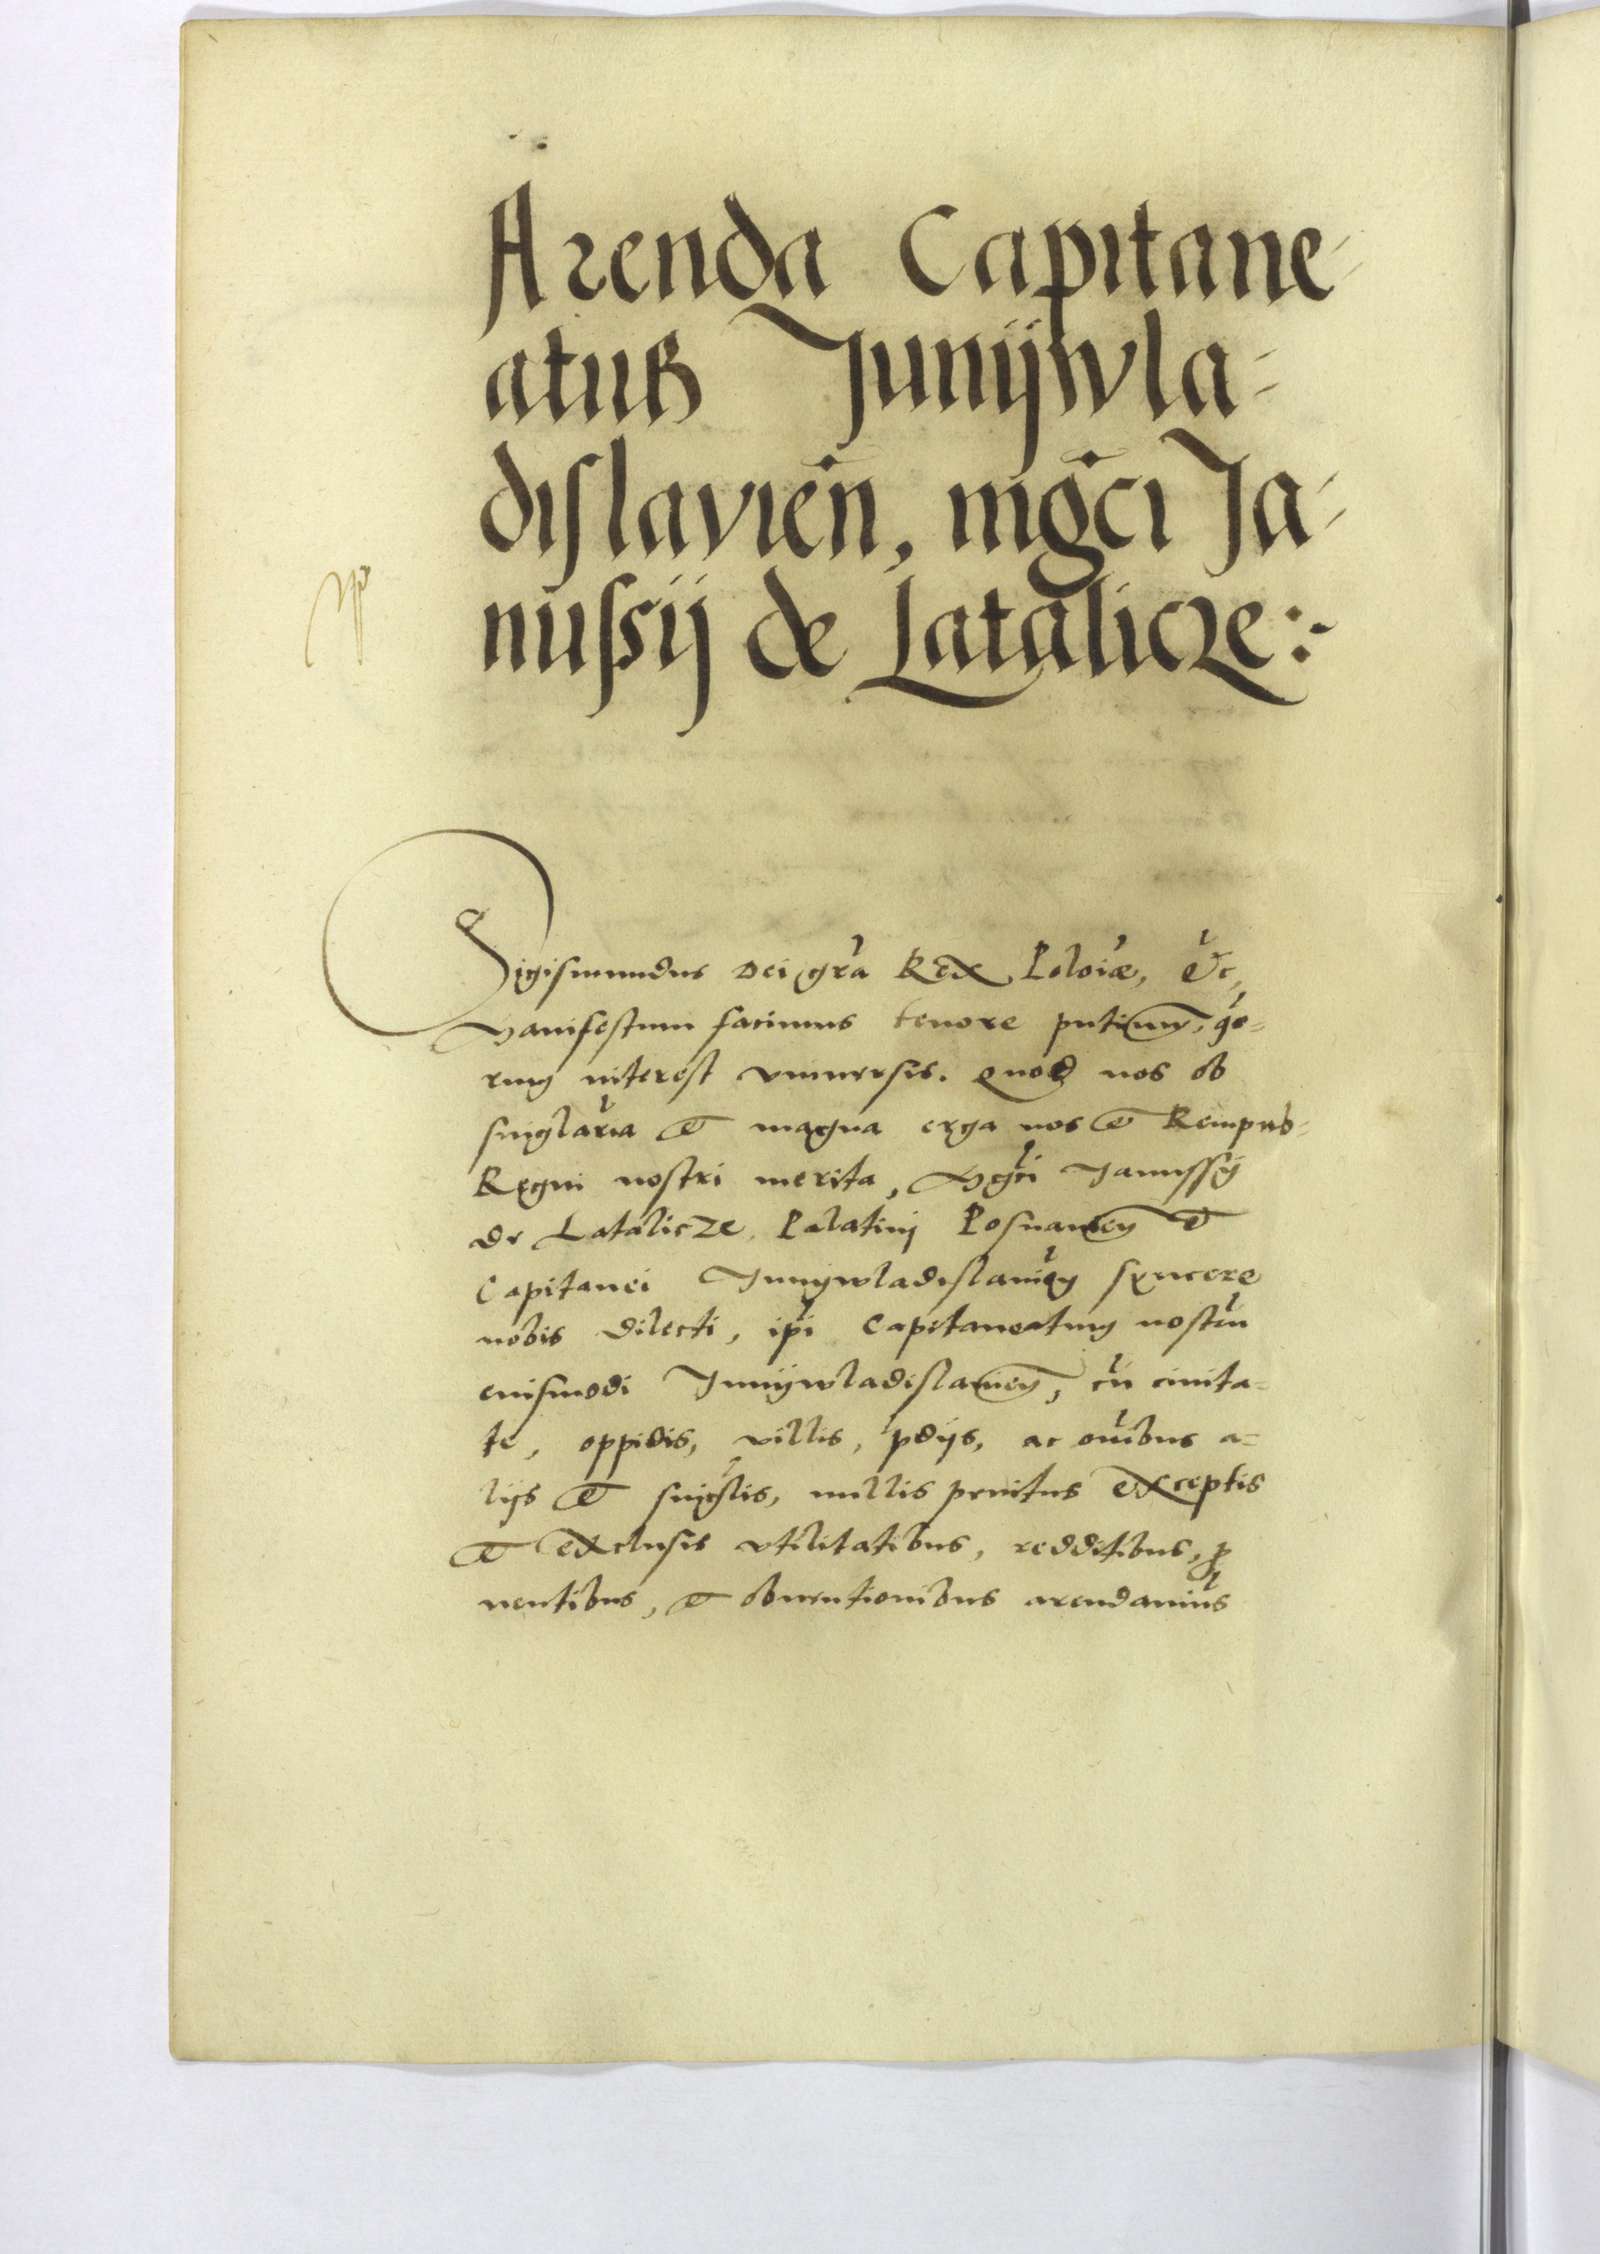 Arenda Capitane-
atus Junijwla-
dislavien̄, mḡci Ja-
nussij de Latalicze:
Sigismundus Dei gr̄a Rex Polōiæ, &c,
Manifestum facimus tenore pn̄tium, quo-
rum interest vniuersis. Quod nos ob
singlār̄ia & magna erga nos & Rempub-
Regni nostri merita, Mgc̄i Janussij
de Latalicze, Palatinj Posnanien̄ &
Capitanei Junijwladislauien̄ syncere
nobis dilecti, ip̄i Capitaneatum nostrū
eiusmodi Junijwladislauien̄, cū ciuita-
te, oppidis, villis, pdijs, ac oībus a-
lijs & singl̄is, nullis penitus exceptis
& exclusis vtilitatibus, redditibus, pro
uentibus, & obuentionibus arendauimꝰ